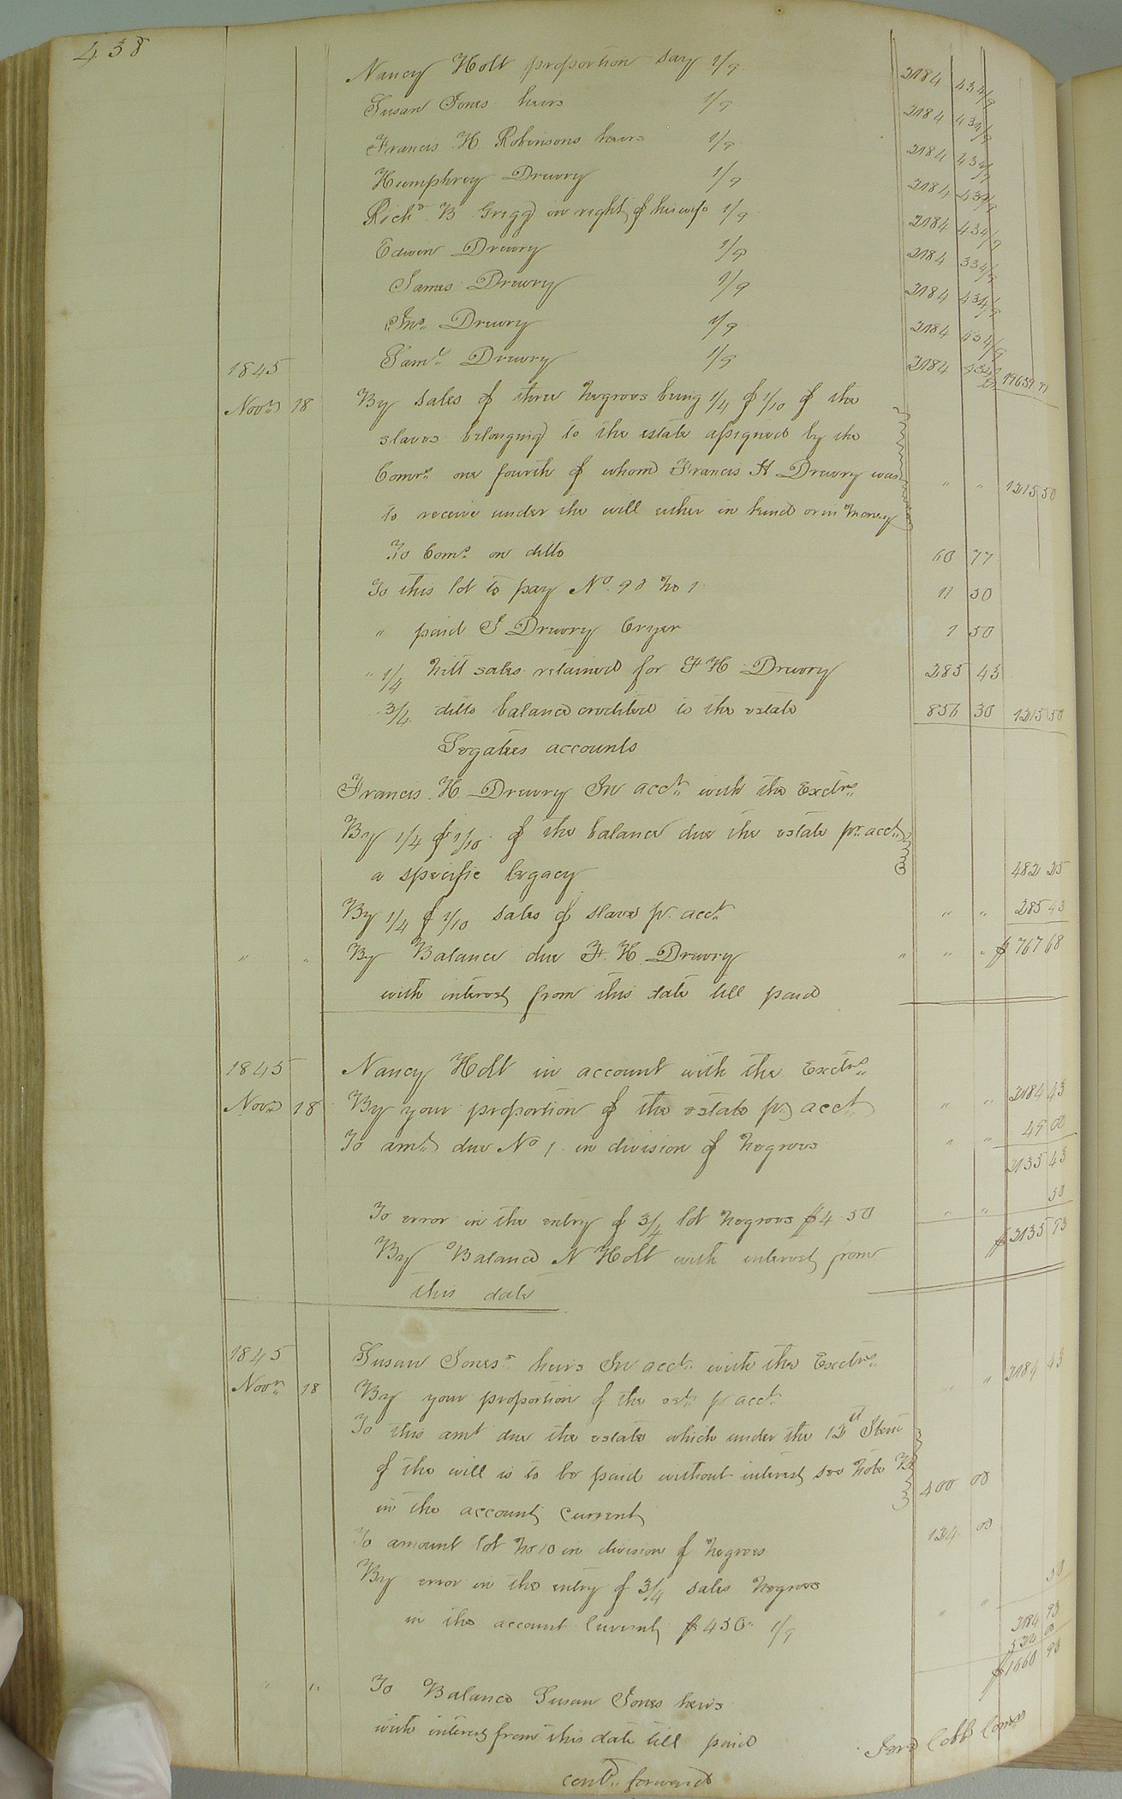 438
Nancy Holt proportion say 1/9 2184 43 4/9
Susan Jones heirs 1/9 2184 43 4/9
Francis H Robinsons heirs 1/9 2184 43 4/9
Humphrey Drewry 1/9 2184 43 4/9
Richd B Grigg in right of his wife 1/9 2184 43 4/9
Edwin Drewry 1/9 2184 33 4/9
James Drewry 1/9 2184 43 4/9
Jno. Drewry 1/9 2184 43 4/9
1845 Saml Drewry 1/9 2184 43 4/9 19659 91
Novr 18 By Sales of three Negroes being 1/4 of 1/10 of the
slaves belonging to the estate assigned by the
Comrs one fourth of whom Francis H Drewry was
to receive under the will either in kind or in money " " 1215 50
To Coms on ditto 60 77
To this lot to pay No. 90 No 1 11 50
" paid J Drewry Cryer 1 50
" 1/4 nett sales retained for F H Drewry 285 43
3/4 ditto balance credited to the estate 856 30 1215 50
Legatees accounts
Francis H Drewry In acct. with the Exctrs.
By 1/4 of 1/10 of the balance due the estate pr. acct.
a specific legacy 482 25
By 1/4 of 1/10 sales of slaves pr. acct " " 285 43
" " By Balance due F. H. Drewry " " " $767 68
with interest from this date till paid
1845 Nancy Holt in account with the Exctrs.
Novr 18 By your proportion of the estate pr acct " " 2184 43
To amt due No 1 in division of Negroes " " 49 00
2135 43
To error in the entry of 3/4 lot Negroes $4 50 " " 50
By Balance N Holt with interest from $2135 93
this date
1845 Susan Jones's heirs In acct. with the Exctrs.
Novr 18 By your proportion of the est. pr acct. " " 2184 43
To this amt due the estate which under the 12th Item
of the will is to be paid without interest see Note
in the account current 400 00
To amount lot No 10 in division of Negroes 124 00
By error in the entry of 3/4 sales Negroes 50
in the account Current $450 1/9 " " 2184 93
$1660 93
" " To Balance Susan Jones heirs
with interest from this date till paid
Cobb Comrs
contd. forward